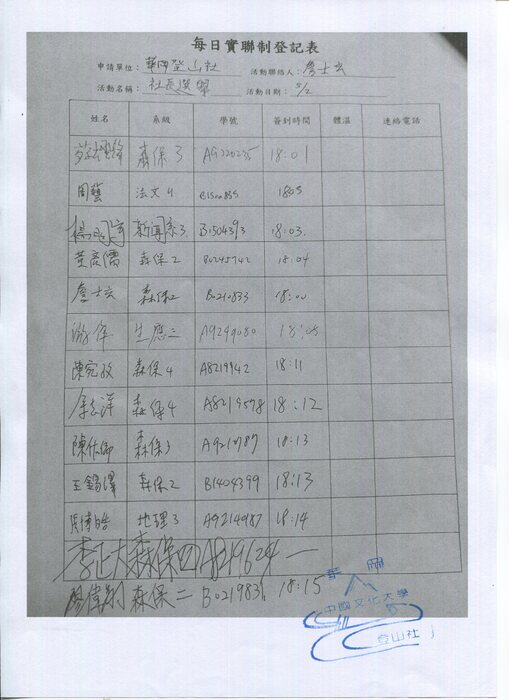 每日實聯制登記表
申請單位：華岡登山社 活動聯絡人：詹士玄
活動名稱：社長選舉 活動日期：5/2
姓名 系級 學號 簽到時間 體溫 連絡電話
森保3 A9220235 18:01
周藝 法文4 1805
新聞系3 B1504393 18:03
森保2 B0245742 18:04
詹士玄 森保2 B0210833 18:00
生應三 A9249080 18:05
陳宛孜 森保4 A8219942 18:11
森保4 A8219578 18:12
森保3 18:13
王錫澤 森保2 B1404399 18:13
周博皓 地理3 A9214987 18:14
李正大 森保四 A8219624 一
森保二 B0219831 18:15
華岡
中國文化大學
登山社